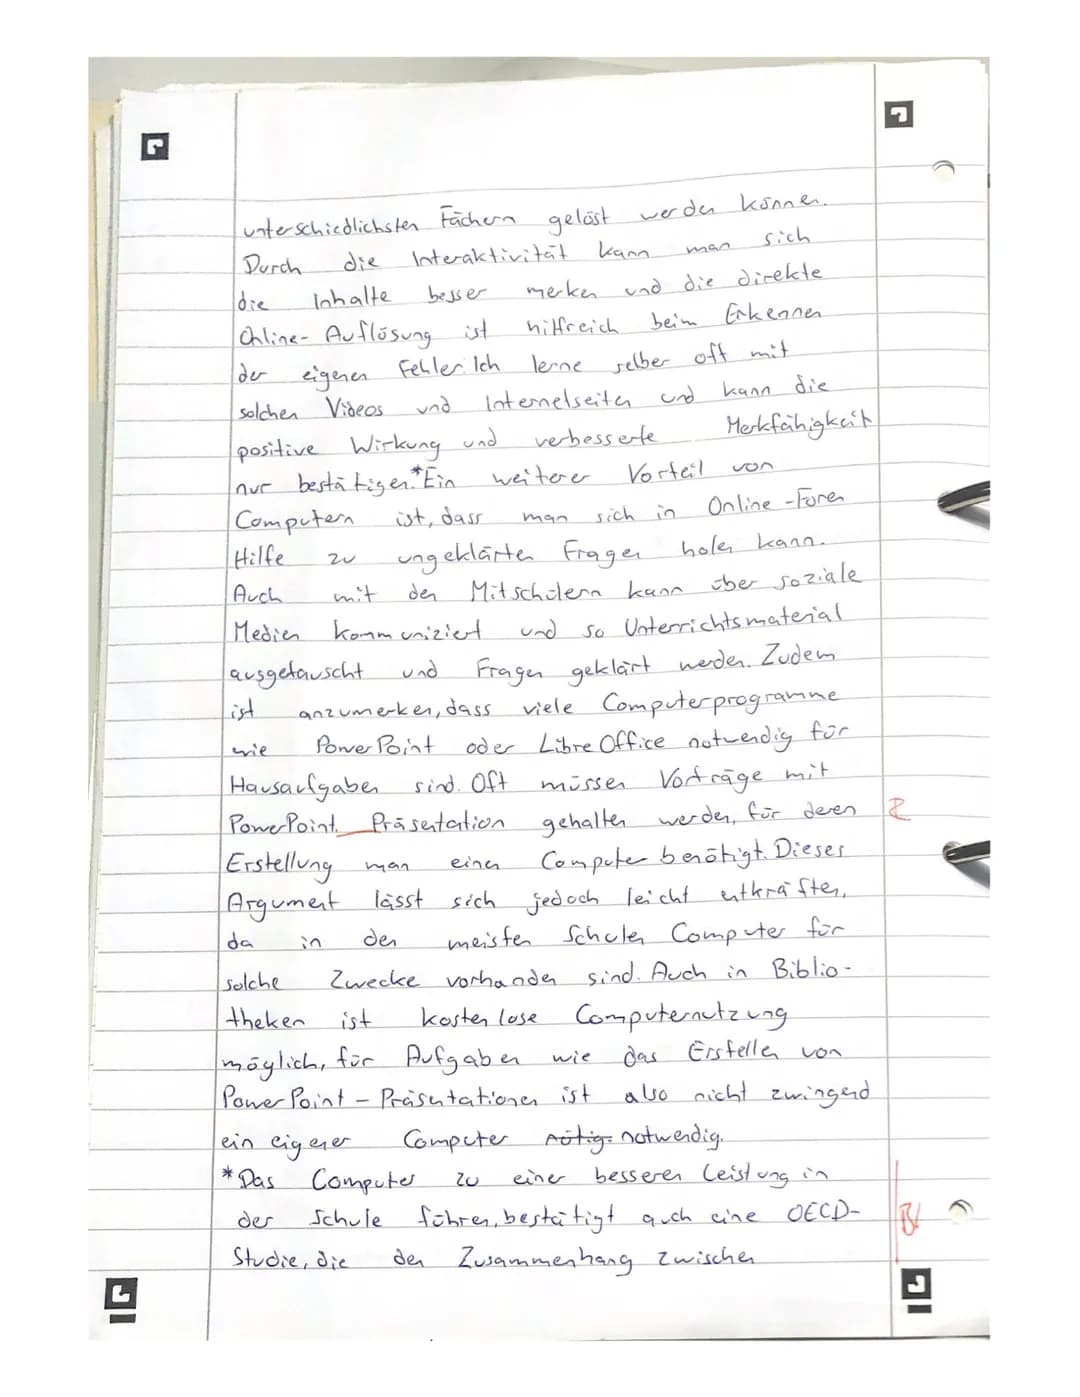 unterschiedlichsten Fächern gelöst werden können.
Durch die Interaktivität kann man sich
die Inhalte besser merken und die direkte
Online-Auflösung ist hilfreich beim Erkennen
der eigenen Fehler. Ich lerne selber oft mit
solchen Videos und Internetseiten und kann die
positive Wirkung und verbesserte Merkfähigkeit
nur bestätigen.* Ein weiterer Vorteil von
Computern ist, dass man sich in Online-Foren
Hilfe zu ungeklärten Fragen holen kann.
Auch mit den Mitschülern kann über soziale
Medien kommuniziert und so Unterrichtsmaterial
ausgetauscht und Fragen geklärt werden. Zudem
ist anzumerken, dass viele Computerprogramme
wie PowerPoint oder LibreOffice notwendig für
Hausaufgaben sind. Oft müssen Vorträge mit
PowerPoint Präsentation gehalten werden, für deren R
Erstellung man einen Computer benötigt. Dieses
Argument lässt sich jedoch leicht entkräften,
da in den meisten Schulen Computer für
solche Zwecke vorhanden sind. Auch in Biblio-
theken ist kostenlose Computernutzung
möglich, für Aufgaben wie das Erstellen von
PowerPoint-Präsentationen ist also nicht zwingend
ein eigener Computer nötig. notwendig.
*Das Computer zu einer besseren Leistung in
der Schule führen, bestätigt auch eine OECD-
Studie, die den Zusammenhang zwischen